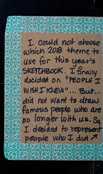 I could not choose
which 2018 theme to
use for this year's
SKETCHBOOK. I finally
decided on "PEOPLE I
WISH I KNEW"... But...
did not want to draw
famous people who are
no longer with us. So
I decided to represent
people who I did